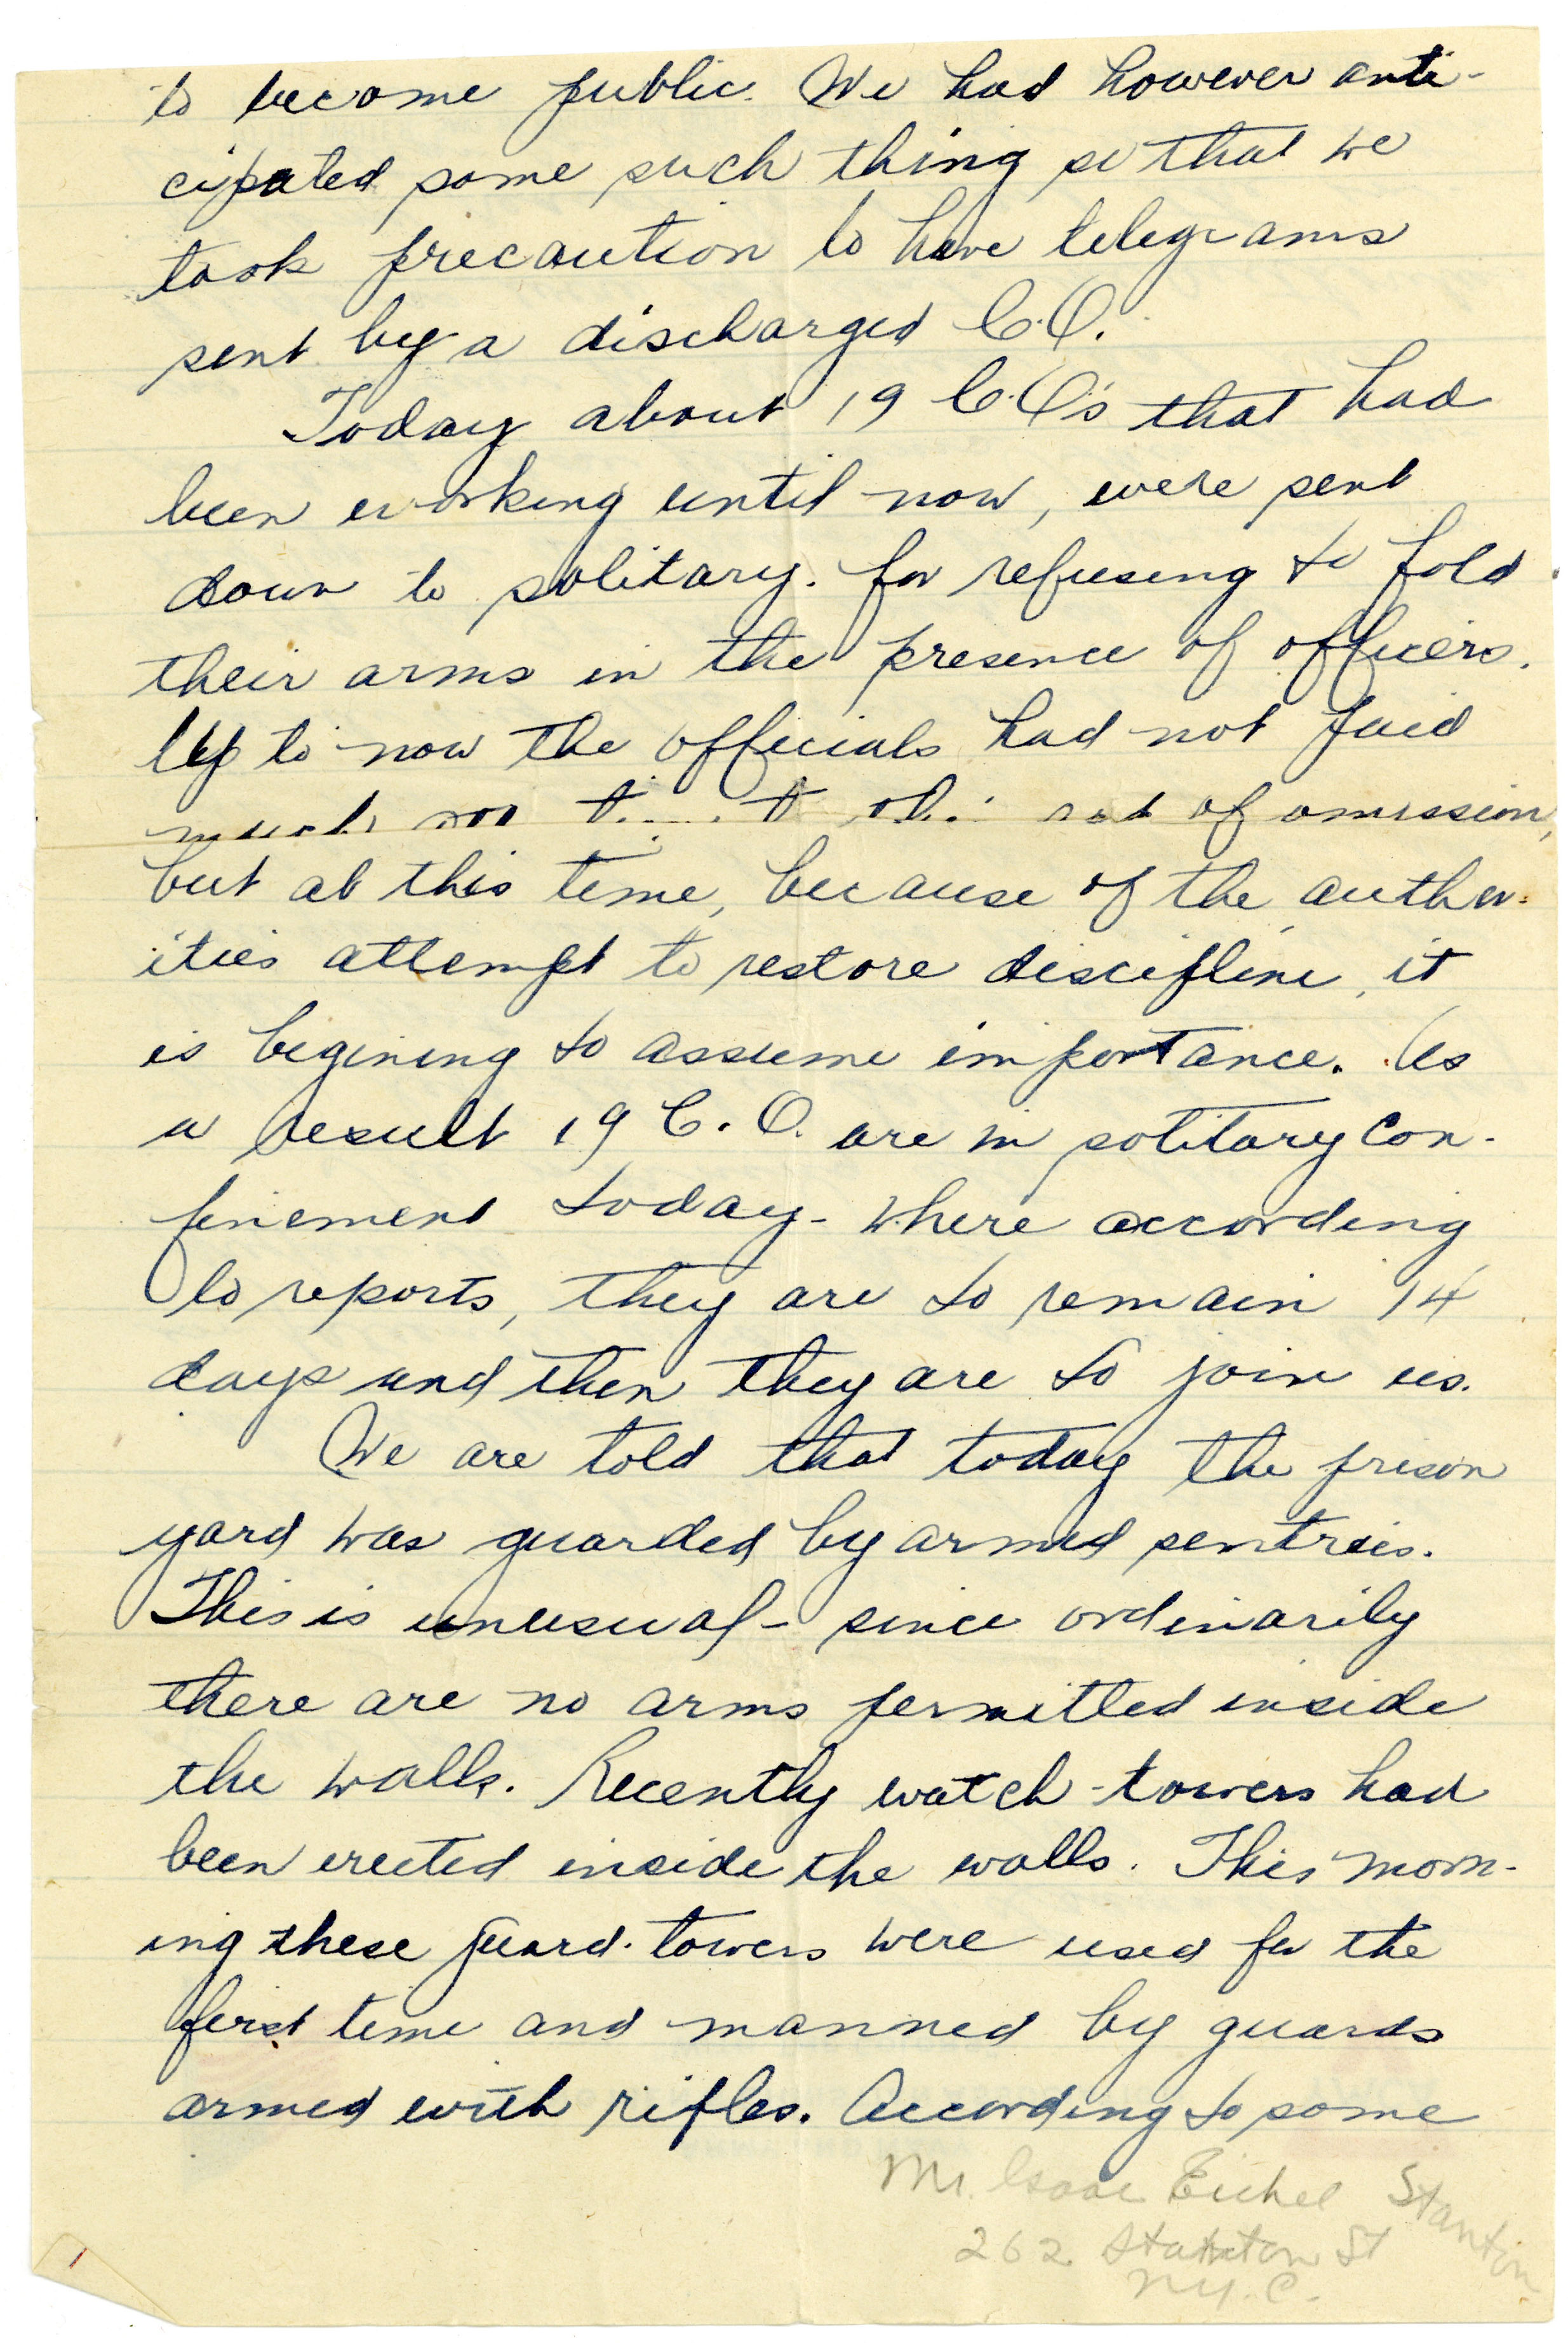 to become public. We had however anti-
cipated some such thing so that we
took precaution to have telegrams
sent by a discharged C.O.
Today about 19 C.O's that had
been working until now, were sent
down to solitary. for refusing to fold
their arms in the presence of officers.
Up to now the officials had not paid
much of omission,
but at this time, because of the author-
ities attempt to restore discipline, it
is begining to assume importance. As
a result 19 C.O. are in solitary con-
finement today - where according
to reports, they are to remain 14
days and then they are to join us.
We are told that today the prison
yard was guarded by armed sentries.
This is unusual - since ordinarily
there are no arms permitted inside
the walls. Recently watch-towers had
been erected inside the walls. This morn-
ing these guard-towers were used for the
first time and manned by guards
armed with rifles. According to some
Mr. Isaac Eichel Stanton
262 Stanton St
N.Y.C.
1